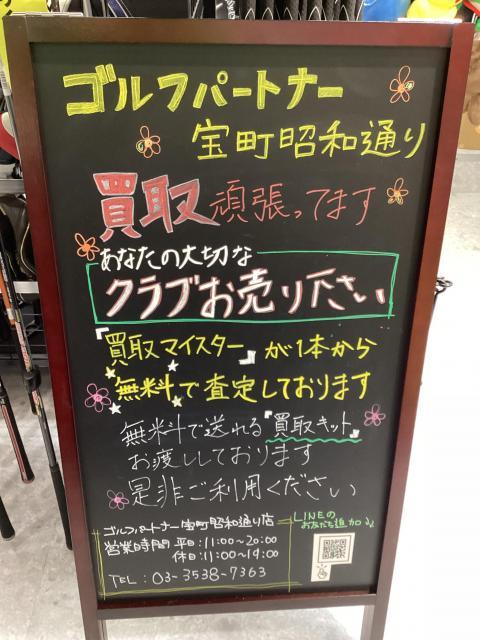 ゴルフパートナー
宝町昭和通り
買取頑張ってます
あなたの大切な
クラブお売り下さい
『買取マイスター』が1本から
無料で査定しております
無料で送れる『買取キット』
お渡ししております
是非ご利用ください
ゴルフパートナー宝町昭和通り店
営業時間 平日:11:00~20:00
休日:11:00~19:00
TEL:03-3538-7363
LINEの
お友だち追加